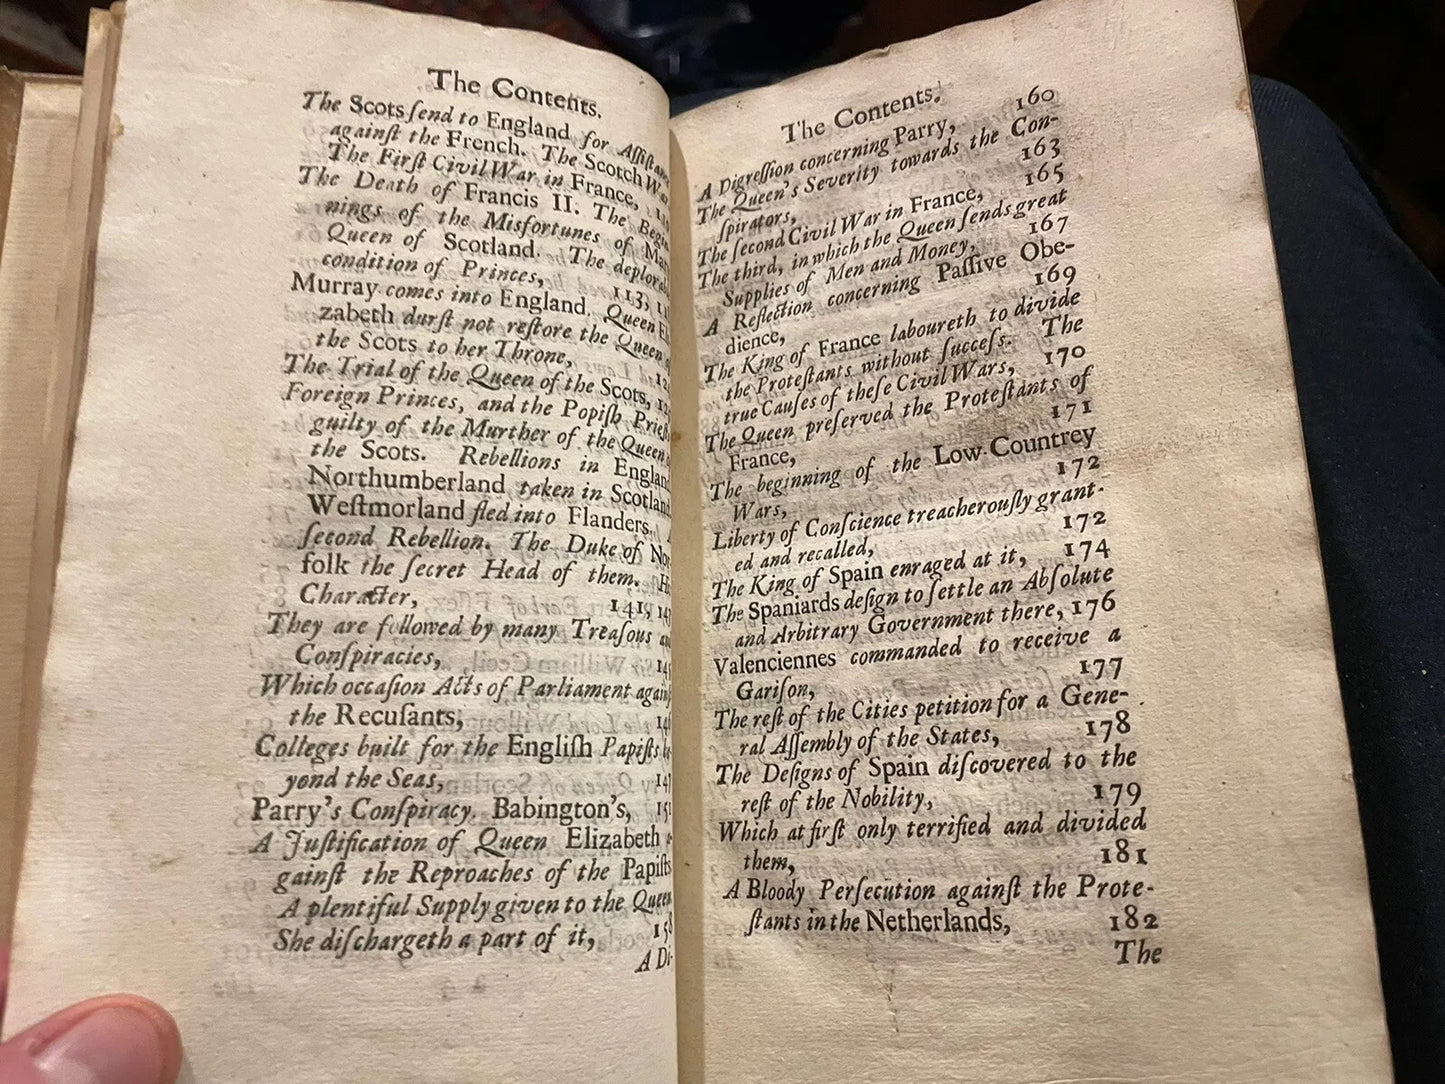 The Contents.
The Scots ſend to England for Aſſiſtance
againſt the French. The Scotch War
The Firſt Civil War in France,
The Death of Francis II. The Begin-
nings of the Misfortunes of Mary
Queen of Scotland. The deplorable
condition of Princes, 113,
Murray comes into England. Queen Eli-
zabeth durſt not reſtore the Queen of
the Scots to her Throne,
The Trial of the Queen of the Scots,
Foreign Princes, and the Popiſh Prieſts
guilty of the Murther of the Queen of
the Scots. Rebellions in England
Northumberland taken in Scotland
Weſtmorland fled into Flanders.
ſecond Rebellion. The Duke of Nor
folk the ſecret Head of them. His
Character, 141,
They are followed by many Treaſous and
Conſpiracies,
Which occaſion Acts of Parliament againſt
the Recuſants,
Colleges built for the Engliſh Papiſts be-
yond the Seas,
Parry's Conſpiracy. Babington's,
A Juſtification of Queen Elizabeth a-
gainſt the Reproaches of the Papiſts
A plentiful Supply given to the Queen
She diſchargeth a part of it, 158
A Di-
The Contents.
A Digreſſion concerning Parry, 160
The Queen's Severity towards the Con-
ſpirators, 163
The ſecond Civil War in France, 165
The third, in which the Queen ſends great
Supplies of Men and Money, 167
A Reflection concerning Paſſive Obe-
dience, 169
The King of France laboureth to divide
the Proteſtants without ſucceſs. The
true Cauſes of theſe Civil Wars, 170
The Queen preſerved the Proteſtants of
France, 171
The beginning of the Low-Countrey
Wars, 172
Liberty of Conſcience treacherouſly grant-
ed and recalled, 172
The King of Spain enraged at it, 174
The Spaniards deſign to ſettle an Abſolute
and Arbitrary Government there, 176
Valenciennes commanded to receive a
Gariſon, 177
The reſt of the Cities petition for a Gene-
ral Aſſembly of the States, 178
The Deſigns of Spain diſcovered to the
reſt of the Nobility, 179
Which at firſt only terrified and divided
them, 181
A Bloody Perſecution againſt the Prote-
ſtants in the Netherlands, 182
The